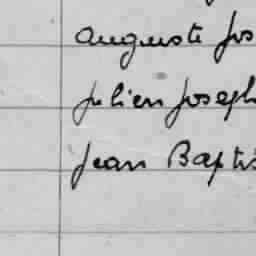 Auguste Jos
Julien Joseph
Jean Baptis